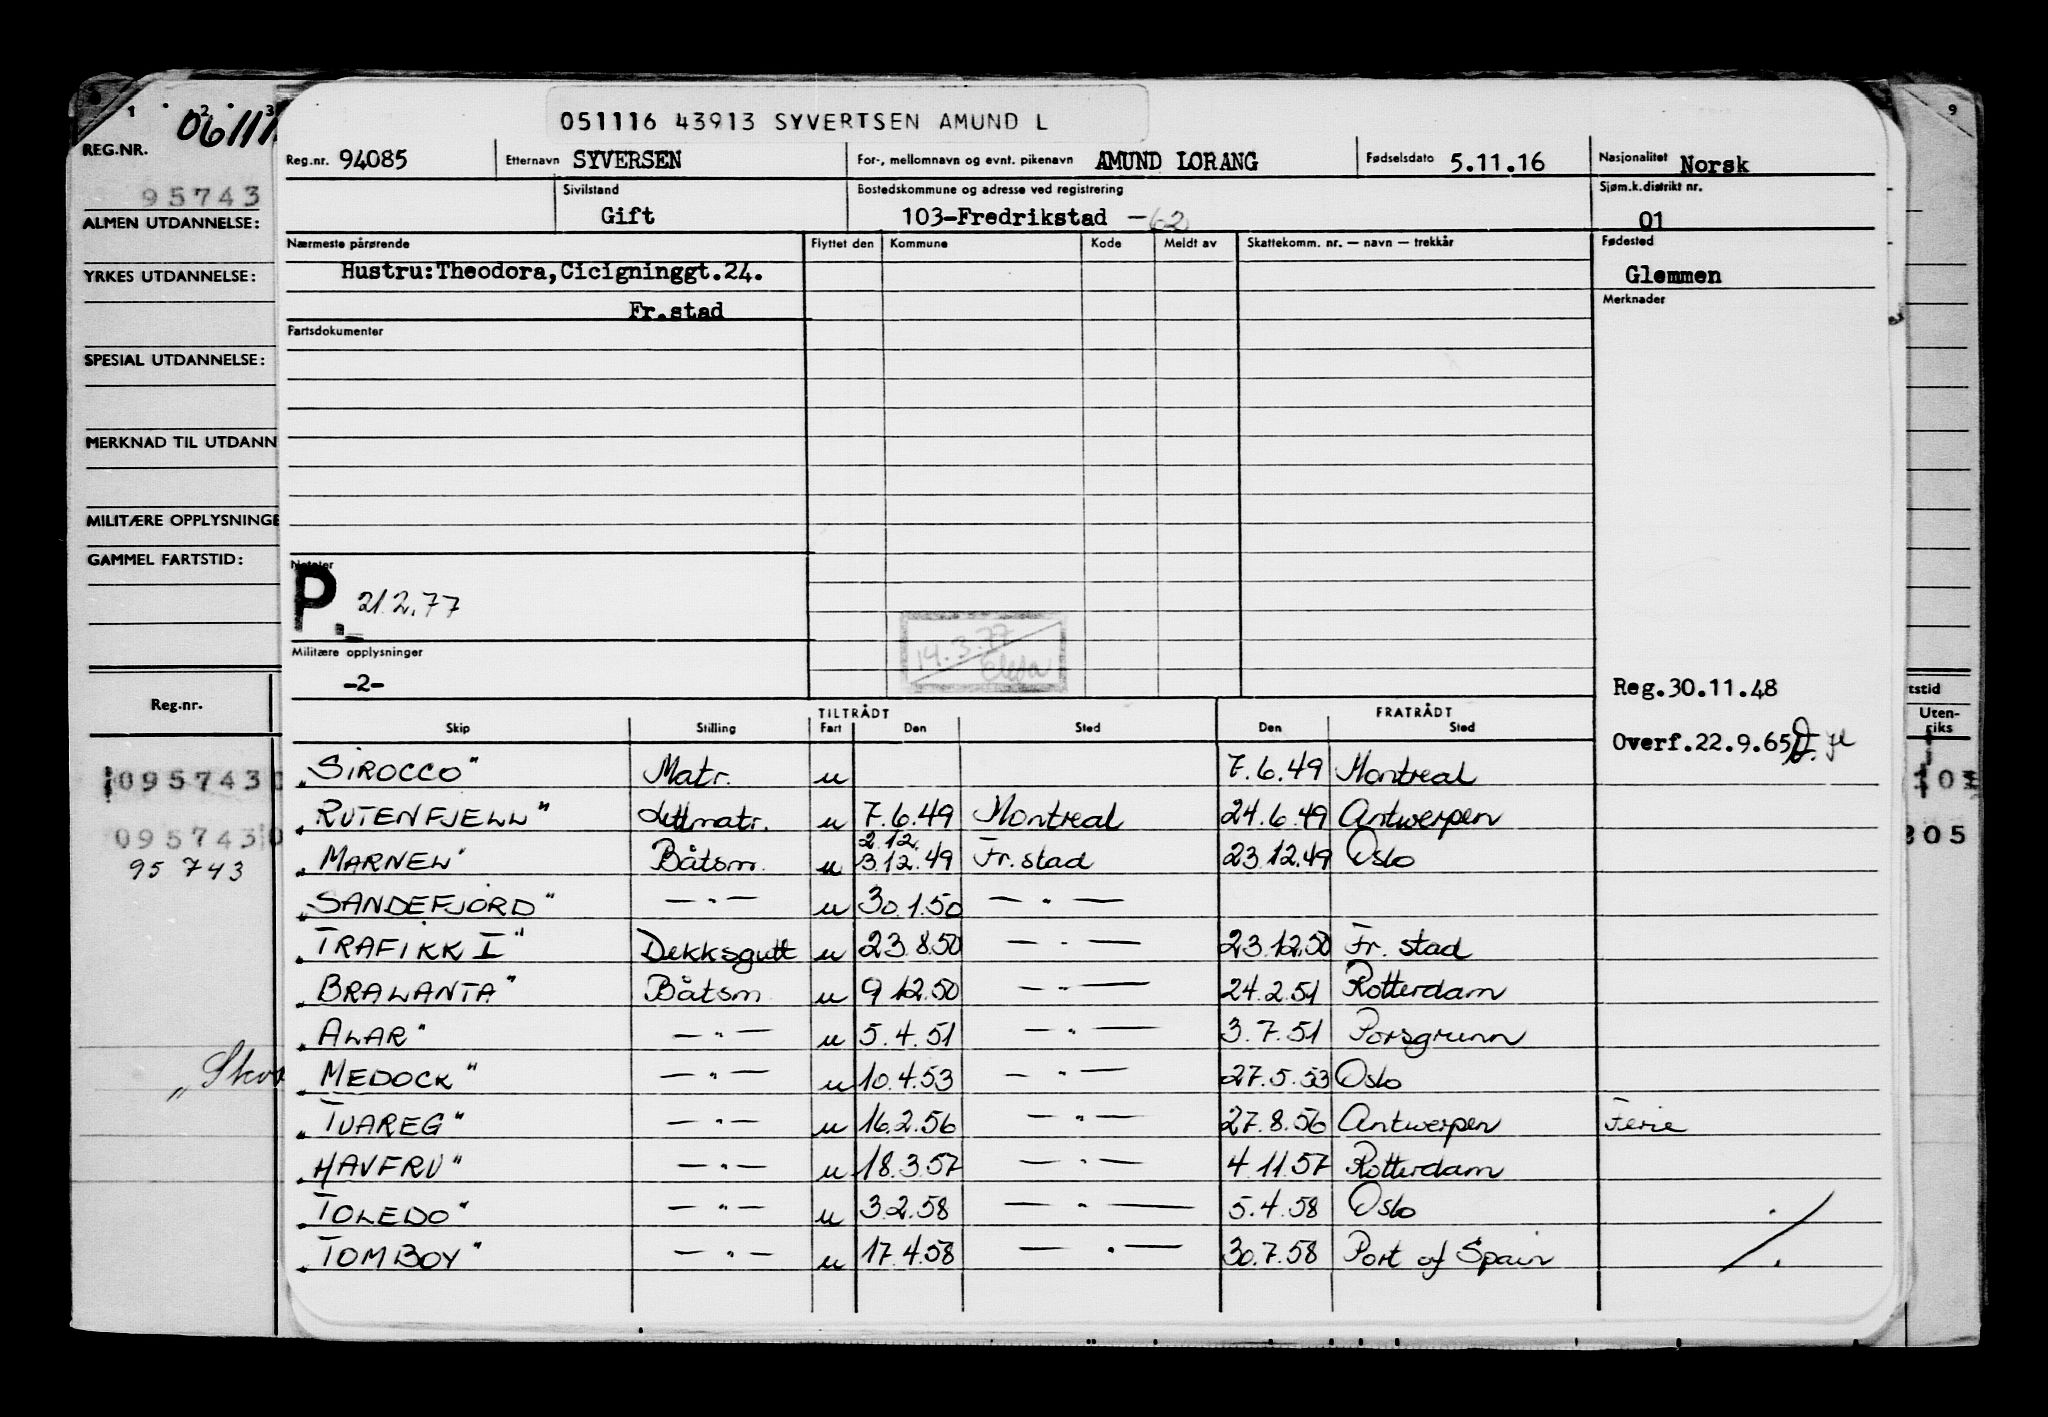 051116 43913 SYVERTSEN AMUND L
Reg.nr. 94085 Etternavn SYVERSEN For-, mellomnavn og evnt. pikenavn AMUND LORANG Fødselsdato 5.11.16 Nasjonalitet Norsk
Sivilstand Gift Bostedskommune og adresse ved registrering 103-Fredrikstad -62 Sjøm.k.distrikt nr. 01
Nærmeste pårørende Flyttet den Kommune Kode Meldt av Skattekomm. nr. — navn — trekkår Fødested
Hustru:Theodora,Cicigninggt.24. Glemmen
Fr.stad Merknader
Fartsdokumenter
Notater
P. 21.2.77
14.3.77
Militære opplysninger
-2-
Reg.30.11.48
Overf.22.9.65
TILTRÅDT FRATRÅDT
Skip Stilling Fart Den Sted Den Sted
"SIROCCO" Matr. u 7.6.49 Montreal
"RUTENFJELL" Lettmatr. u 7.6.49 Montreal 24.6.49 Antwerpen
2.12.
"MARNEL" Båtsm. u 3.12.49 Fr.stad 23.12.49 Oslo
"SANDEFJORD" — " — u 30.1.50 — " —
"TRAFIKK I" Dekksgutt u 23.8.50 — " — 23.12.50 Fr. stad
"BRALANTA" Båtsm. u 9.12.50 — " — 24.2.51 Rotterdam
"ALAR" — " — u 5.4.51 — " — 3.7.51 Porsgrunn
"MEDOCK" — " — u 10.4.53 — " — 27.5.53 Oslo
"TUAREG" — " — u 16.2.56 — " — 27.8.56 Antwerpen Ferie
"HAVFRU" — " — u 18.3.57 — " — 4.11.57 Rotterdam
"TOLEDO" — " — u 3.2.58 — " — 5.4.58 Oslo
"TOMBOY" — " — u 17.4.58 — " — 30.7.58 Port of Spain
1 2 3
REG.NR.
95743
ALMEN UTDANNELSE:
YRKES UTDANNELSE:
SPESIAL UTDANNELSE:
MERKNAD TIL UTDANN
MILITÆRE OPPLYSNINGE
GAMMEL FARTSTID:
Reg.nr.
095743
095743
95 743
9
tstid
Uten-
riks
103
305